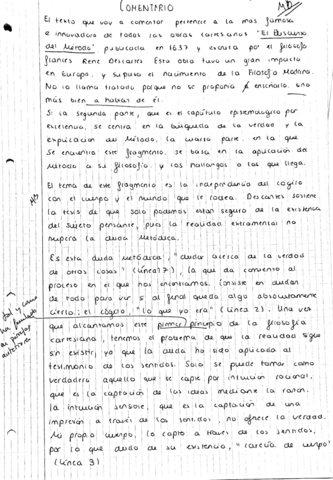 COMENTARIO
El texto que voy a comentar pertenece a la más famosa
e innovadora de todas las obras cartesianas "El Discurso
del Método" publicada en 1637 y escrita por el filósofo
francés René Descartes. Esta obra tuvo un gran impacto
en Europa, y supuso el nacimiento de la Filosofía Moderna.
No lo llama tratado porque no se proponía enseñarlo, sino
más bien a hablar de él.
Si la segunda parte, que es el capítulo epistemológico por
excelencia, se centra en la búsqueda de la verdad y la
explicación del Método, la cuarta parte, en la que
se encuentra este fragmento, se basa en la aplicación del
Método a su filosofía, y los hallazgos a los que llega.
El tema de este fragmento es la independencia del cogito
con el cuerpo y el mundo que le rodea. Descartes sostiene
la tesis de que solo podemos estar seguro de la existencia
del sujeto pensante, pues la realidad extramental no
supera la duda metódica.
Es esta duda metódica, "dudar acerca de la verdad
de otras cosas" (línea 7), la que da comienzo al
proceso en el que nos encontramos. Consiste en dudar
de todo para ver si al final queda algo absolutamente
cierto: el cogito, "lo que yo era" (línea 2). Una vez
que alcanzamos este primer principio de la filosofía
cartesiana, tenemos el problema de que la realidad sigue
sin existir, ya que la duda ha sido aplicada al
testimonio de los sentidos. Solo se puede tomar como
verdadero aquello que se capte por intuición racional,
que es la captación de las ideas mediante la razón.
La intuición sensible, que es la captación de una
impresión a través de los sentidos, no ofrece la verdad.
Mi propio cuerpo, lo capto a través de los sentidos,
por lo que dudo de su existencia, "carecía de cuerpo"
(línea 3)